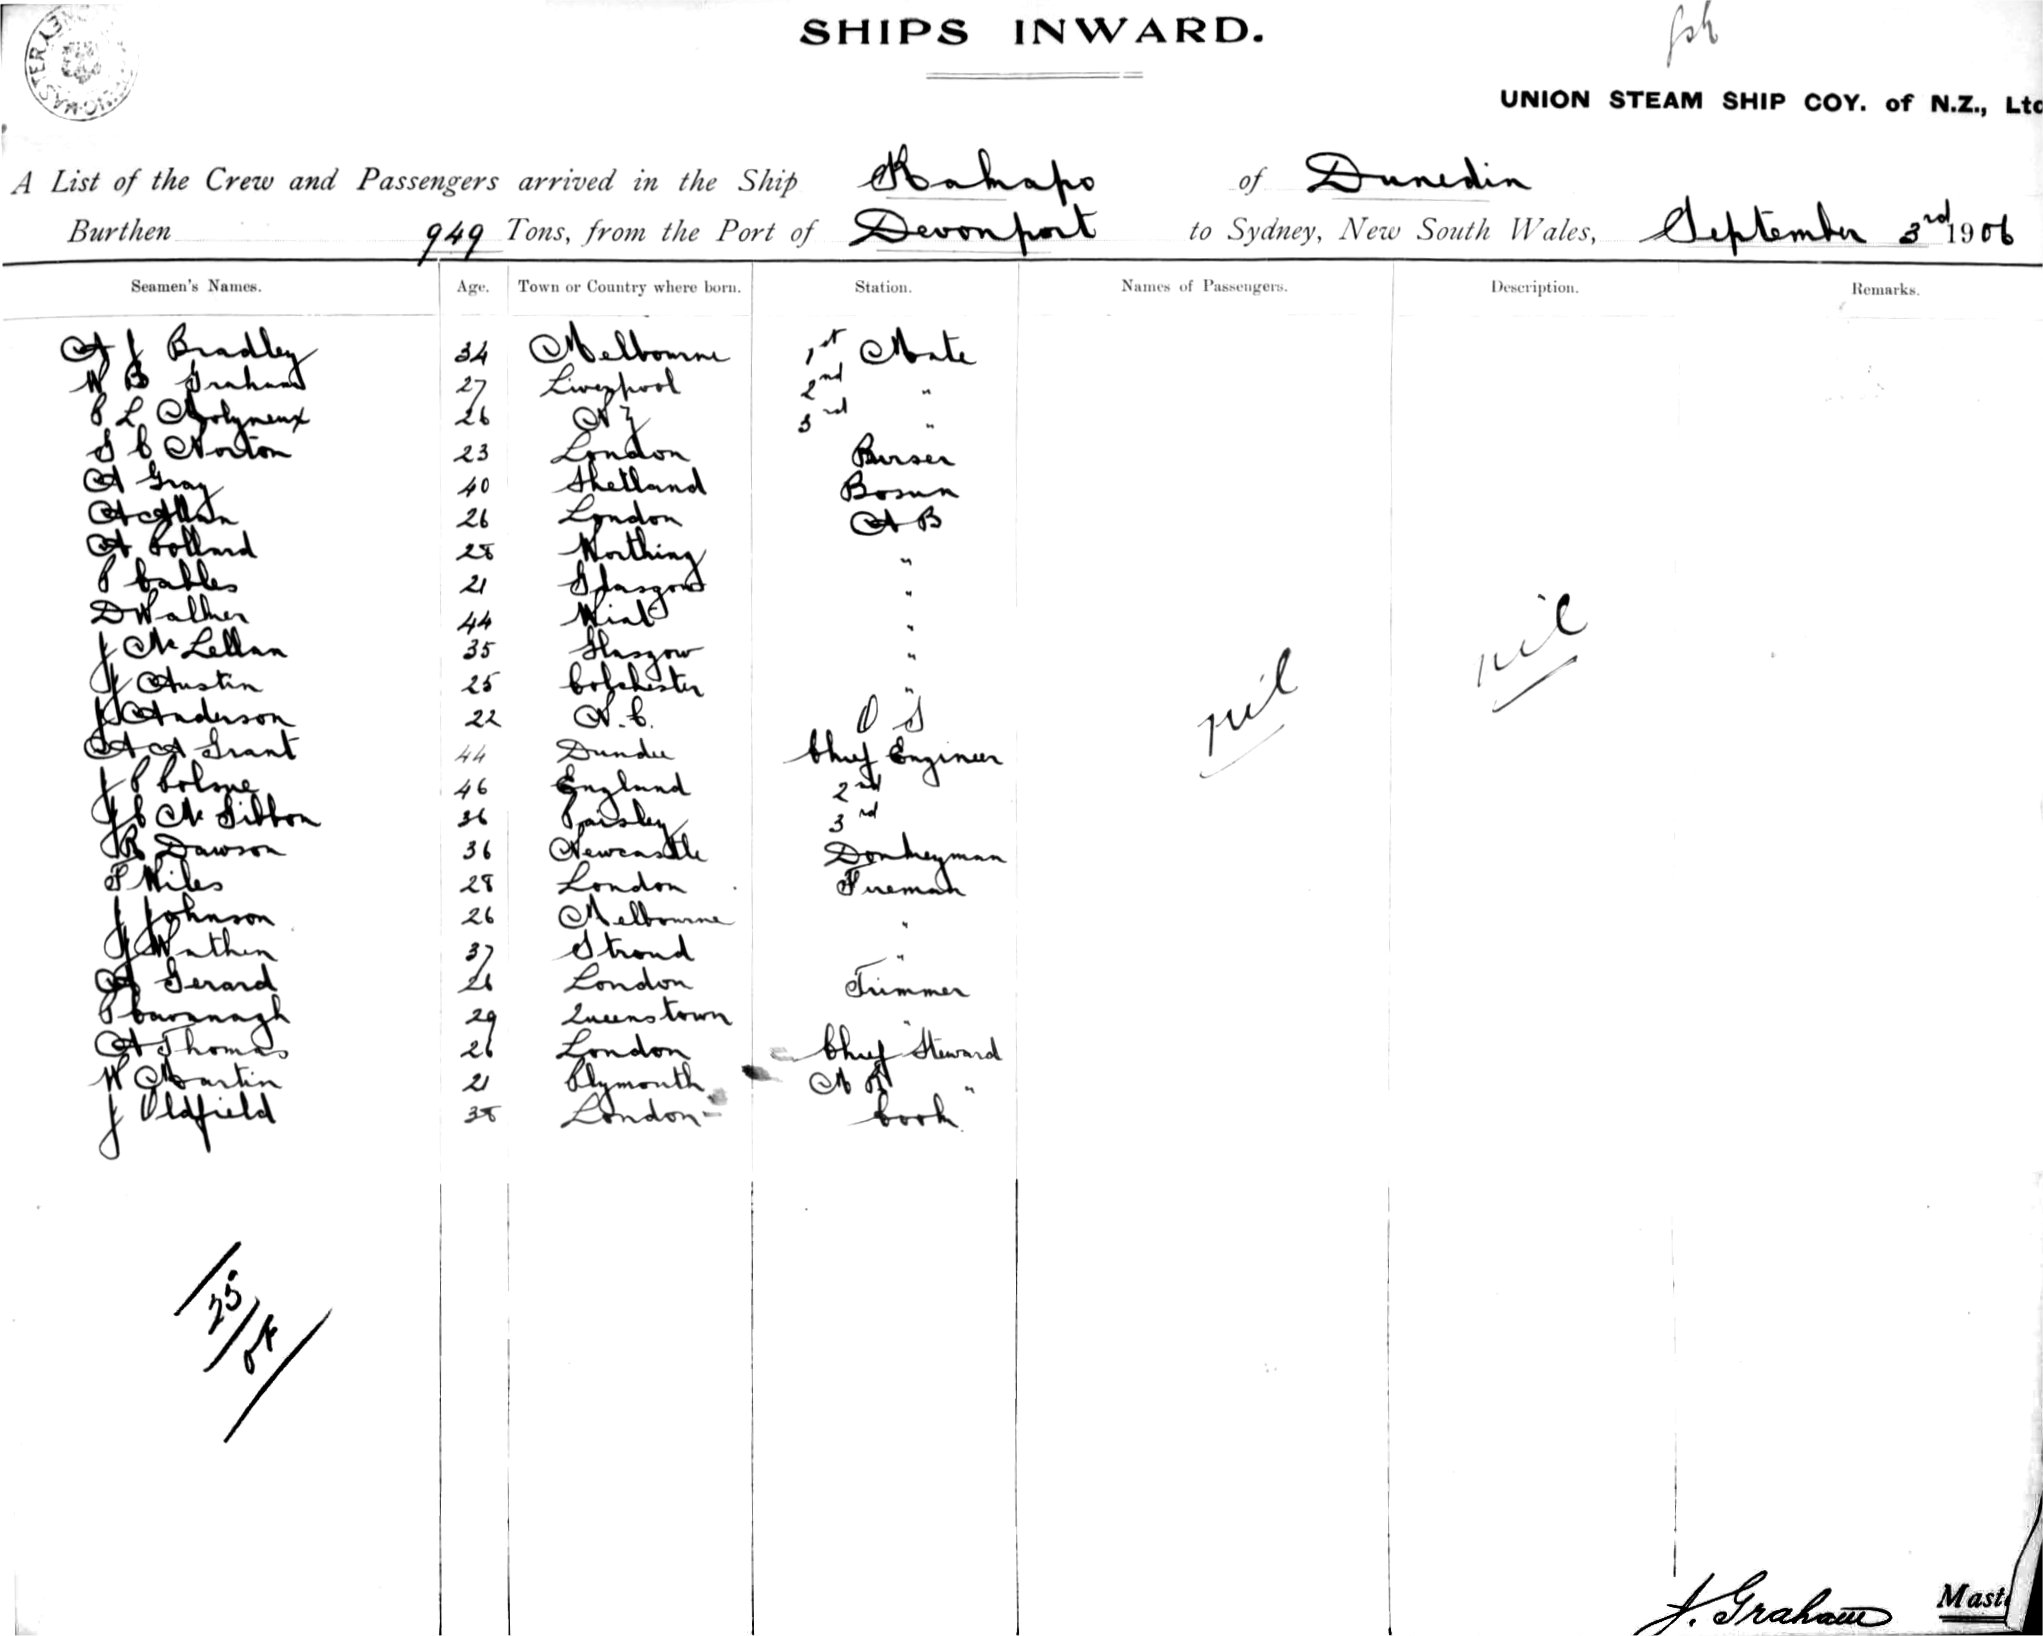 SHIPS INWARD.
UNION STEAM SHIP COY. of N.Z., Ltd
A List of the Crew and Passengers arrived in the Ship Kakapo of Dunedin
Burthen 949 Tons, from the Port of Devonport to Sydney, New South Wales, September 3rd 1906
Seamen's Names. Age. Town or Country where born. Station. Names of Passengers. Description. Remarks.
A J Bradley 34 Melbourne 1st Mate
W B Graham 27 Liverpool 2nd "
P L Molyneux 26 N Z 3rd "
G C Norton 23 London Purser
A Gray 40 Shetland Bosun
A Allan 26 London A B
A Collard 28 Worthing "
P Cables 21 Glasgow "
D Walker 44 "
J Mc Lellan 35 Glasgow "
J Austin 25 Colchester "
J Anderson 22 N.C. O S
A A Grant 44 Dundee Chief Engineer
J P 46 England 2nd
J C Mc Gibbon 36 Paisley 3rd
R Dawson 36 Newcastle Donkeyman
F Wiles 28 London Fireman
J Johnson 26 Melbourne "
J Wathen 37 Stroud "
A Gerard 26 London Trimmer
P Cavanagh 29 Queenstown "
A Thomas 26 London Chief Steward
W Martin 21 Plymouth "
J Oldfield 38 London Cook
nil nil
25
J. Graham Maste